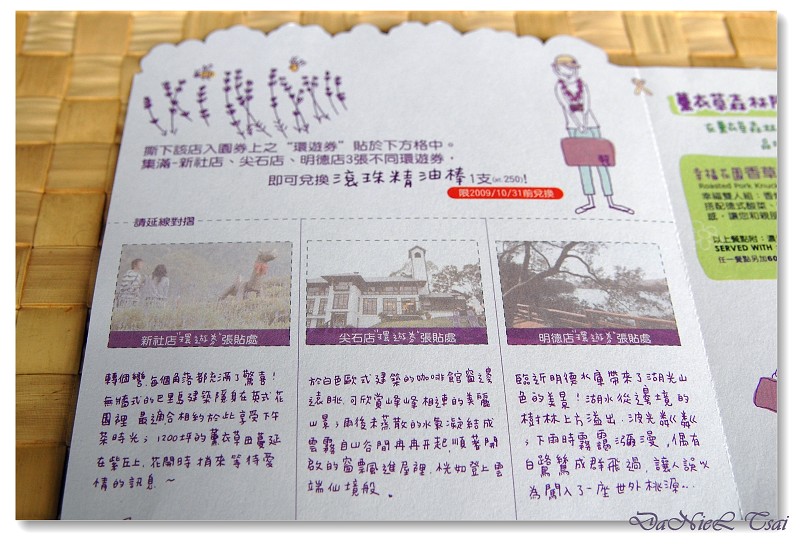 撕下該店入園券上之“環遊券”貼於下方格中。
集滿-新社店、尖石店、明德店3張不同環遊券，
即可兌換滾珠精油棒1支(NT.250)!
限2009/10/31前兌換
請延線對摺
新社店“環遊券”張貼處
尖石店“環遊券”張貼處
明德店“環遊券”張貼處
轉個彎，每個角落都充滿了驚喜！
無牆式的巴里島建築隱身在英式花
園裡，最適合相約於此享受下午
茶時光；1200坪的薰衣草田蔓延
在紫丘上，花開時捎來等待愛
情的訊息。~
於白色歐式建築的咖啡館窗邊
遠眺，可欣賞峰峰相連的美麗
山景；雨後未蒸散的水氣凝結成
雲霧自山谷間冉冉升起，順著開
啟的窗飄進屋裡，恍如登上雲
端仙境般。
臨近明德水庫帶來了湖光山
色的美景！湖水從邊境的
樹林上方溢出，波光粼粼
；下雨時霧靄瀰漫，偶有
白鷺鷥成群飛過，讓人誤以
為闖入了一座世外桃源...
薰衣草森林
在薰衣草森林
幸福花園香草
Roasted Pork Knuck
幸福雙人組：香
搭配德式酸菜、
感，讓您和親朋
以上餐點附：濃
SERVED WITH
任一餐點另加60
DaNieL Tsai